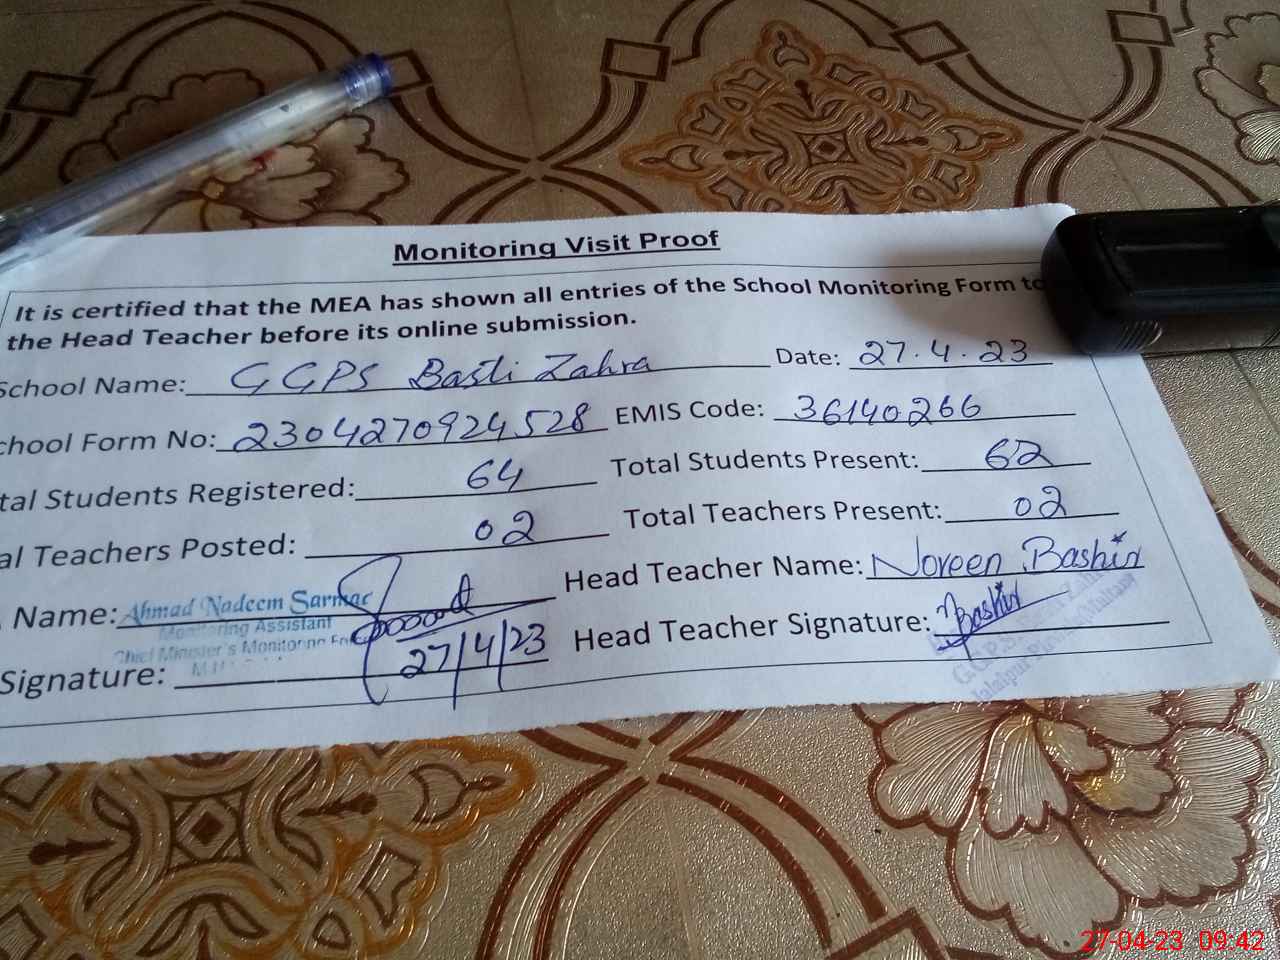 Monitoring Visit Proof
It is certified that the MEA has shown all entries of the School Monitoring Form to
the Head Teacher before its online submission.
School Name: GGPS Basti Zahra Date: 27.4.23
chool Form No: 2304270924528 EMIS Code: 36140266
tal Students Registered: 64 Total Students Present: 62
al Teachers Posted: 02 Total Teachers Present: 02
Name: Ahmad Nadeem Sarmad Head Teacher Name: Noreen Bashir
Monitoring Assistant
Chief Minister's Monitoring
Signature: 27/4/23 Head Teacher Signature: Bashir
G.G.P.S
Jalalpur Pirwala (Multan)
27-04-23 09:42